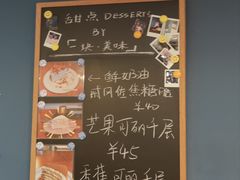 甜点 DESSERTS
BY
「一块·美味」
← 鲜奶油
戚风佐焦糖酱
¥40
芒果可丽千层
¥45
香蕉可丽千层